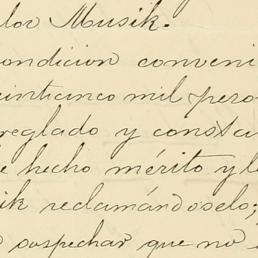 lor Musik.
condicion conveni
einticinco mil peso
reglado y consta
e hecho mérito y le
ik reclamándoselo;
o sospechar que no